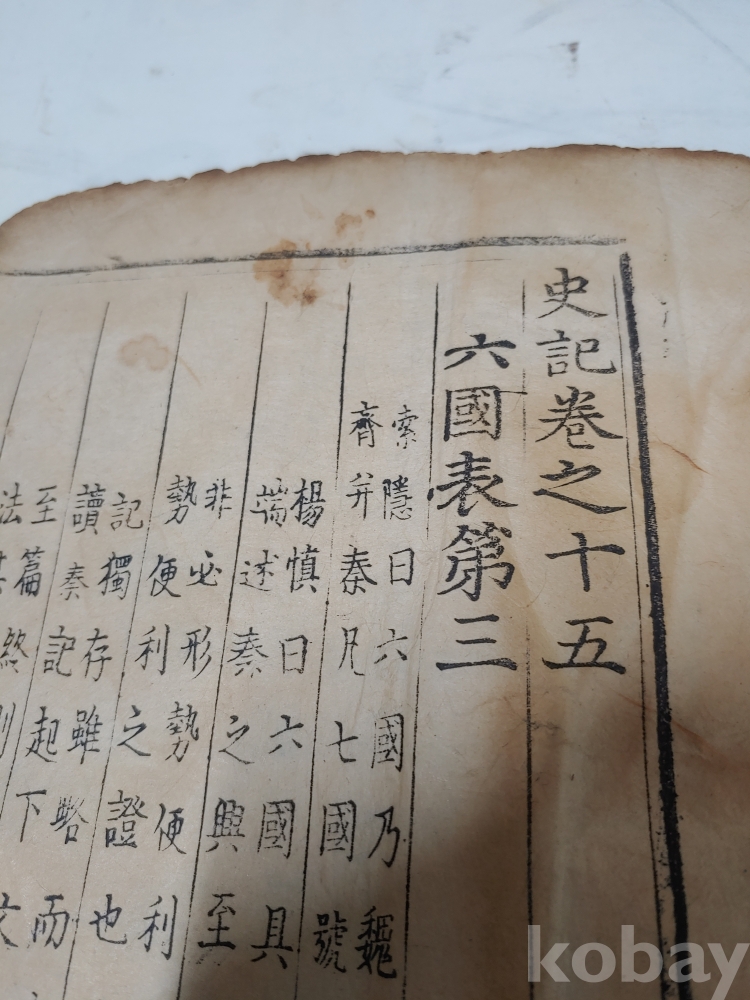 史記卷之十五
六國表第三
索隱曰六國乃魏
齊并秦凡七國號
楊愼曰六國具
端述秦之興至
非必形勢便利
勢便利之證也
記獨存雖略而
讀秦記起下文
至篇終
法
kobay